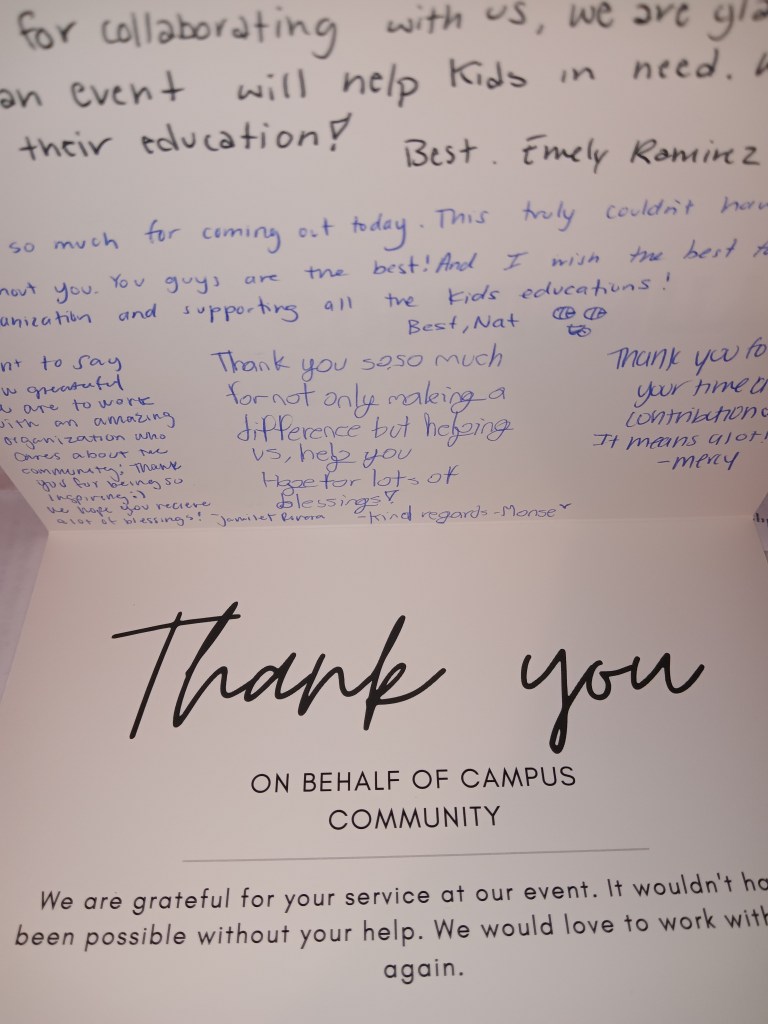 for collaborating with us, we are gla
an event will help kids in need.
their education!
Best. Emely Ramirez
so much for coming out today. This truly couldn't hav
hout you. You guys are the best! And I wish the best fo
anization and supporting all the kids educations!
Best, Nat
nt to say
w greatful
are to work
with an amazing
organization who
cares about the
community! Thank
you for being so
inspiring :)
we hope you recieve
alot of blessings! -Jamilet Rivera
Thank you sososo much
for not only making a
difference but helping
us, help you
Hope for lots of
blessings!
-kind regards -Monse
Thank you fo
your time a
contribution
It means alot!
-mercy
Thank you
ON BEHALF OF CAMPUS
COMMUNITY
We are grateful for your service at our event. It wouldn't ha
been possible without your help. We would love to work with
again.